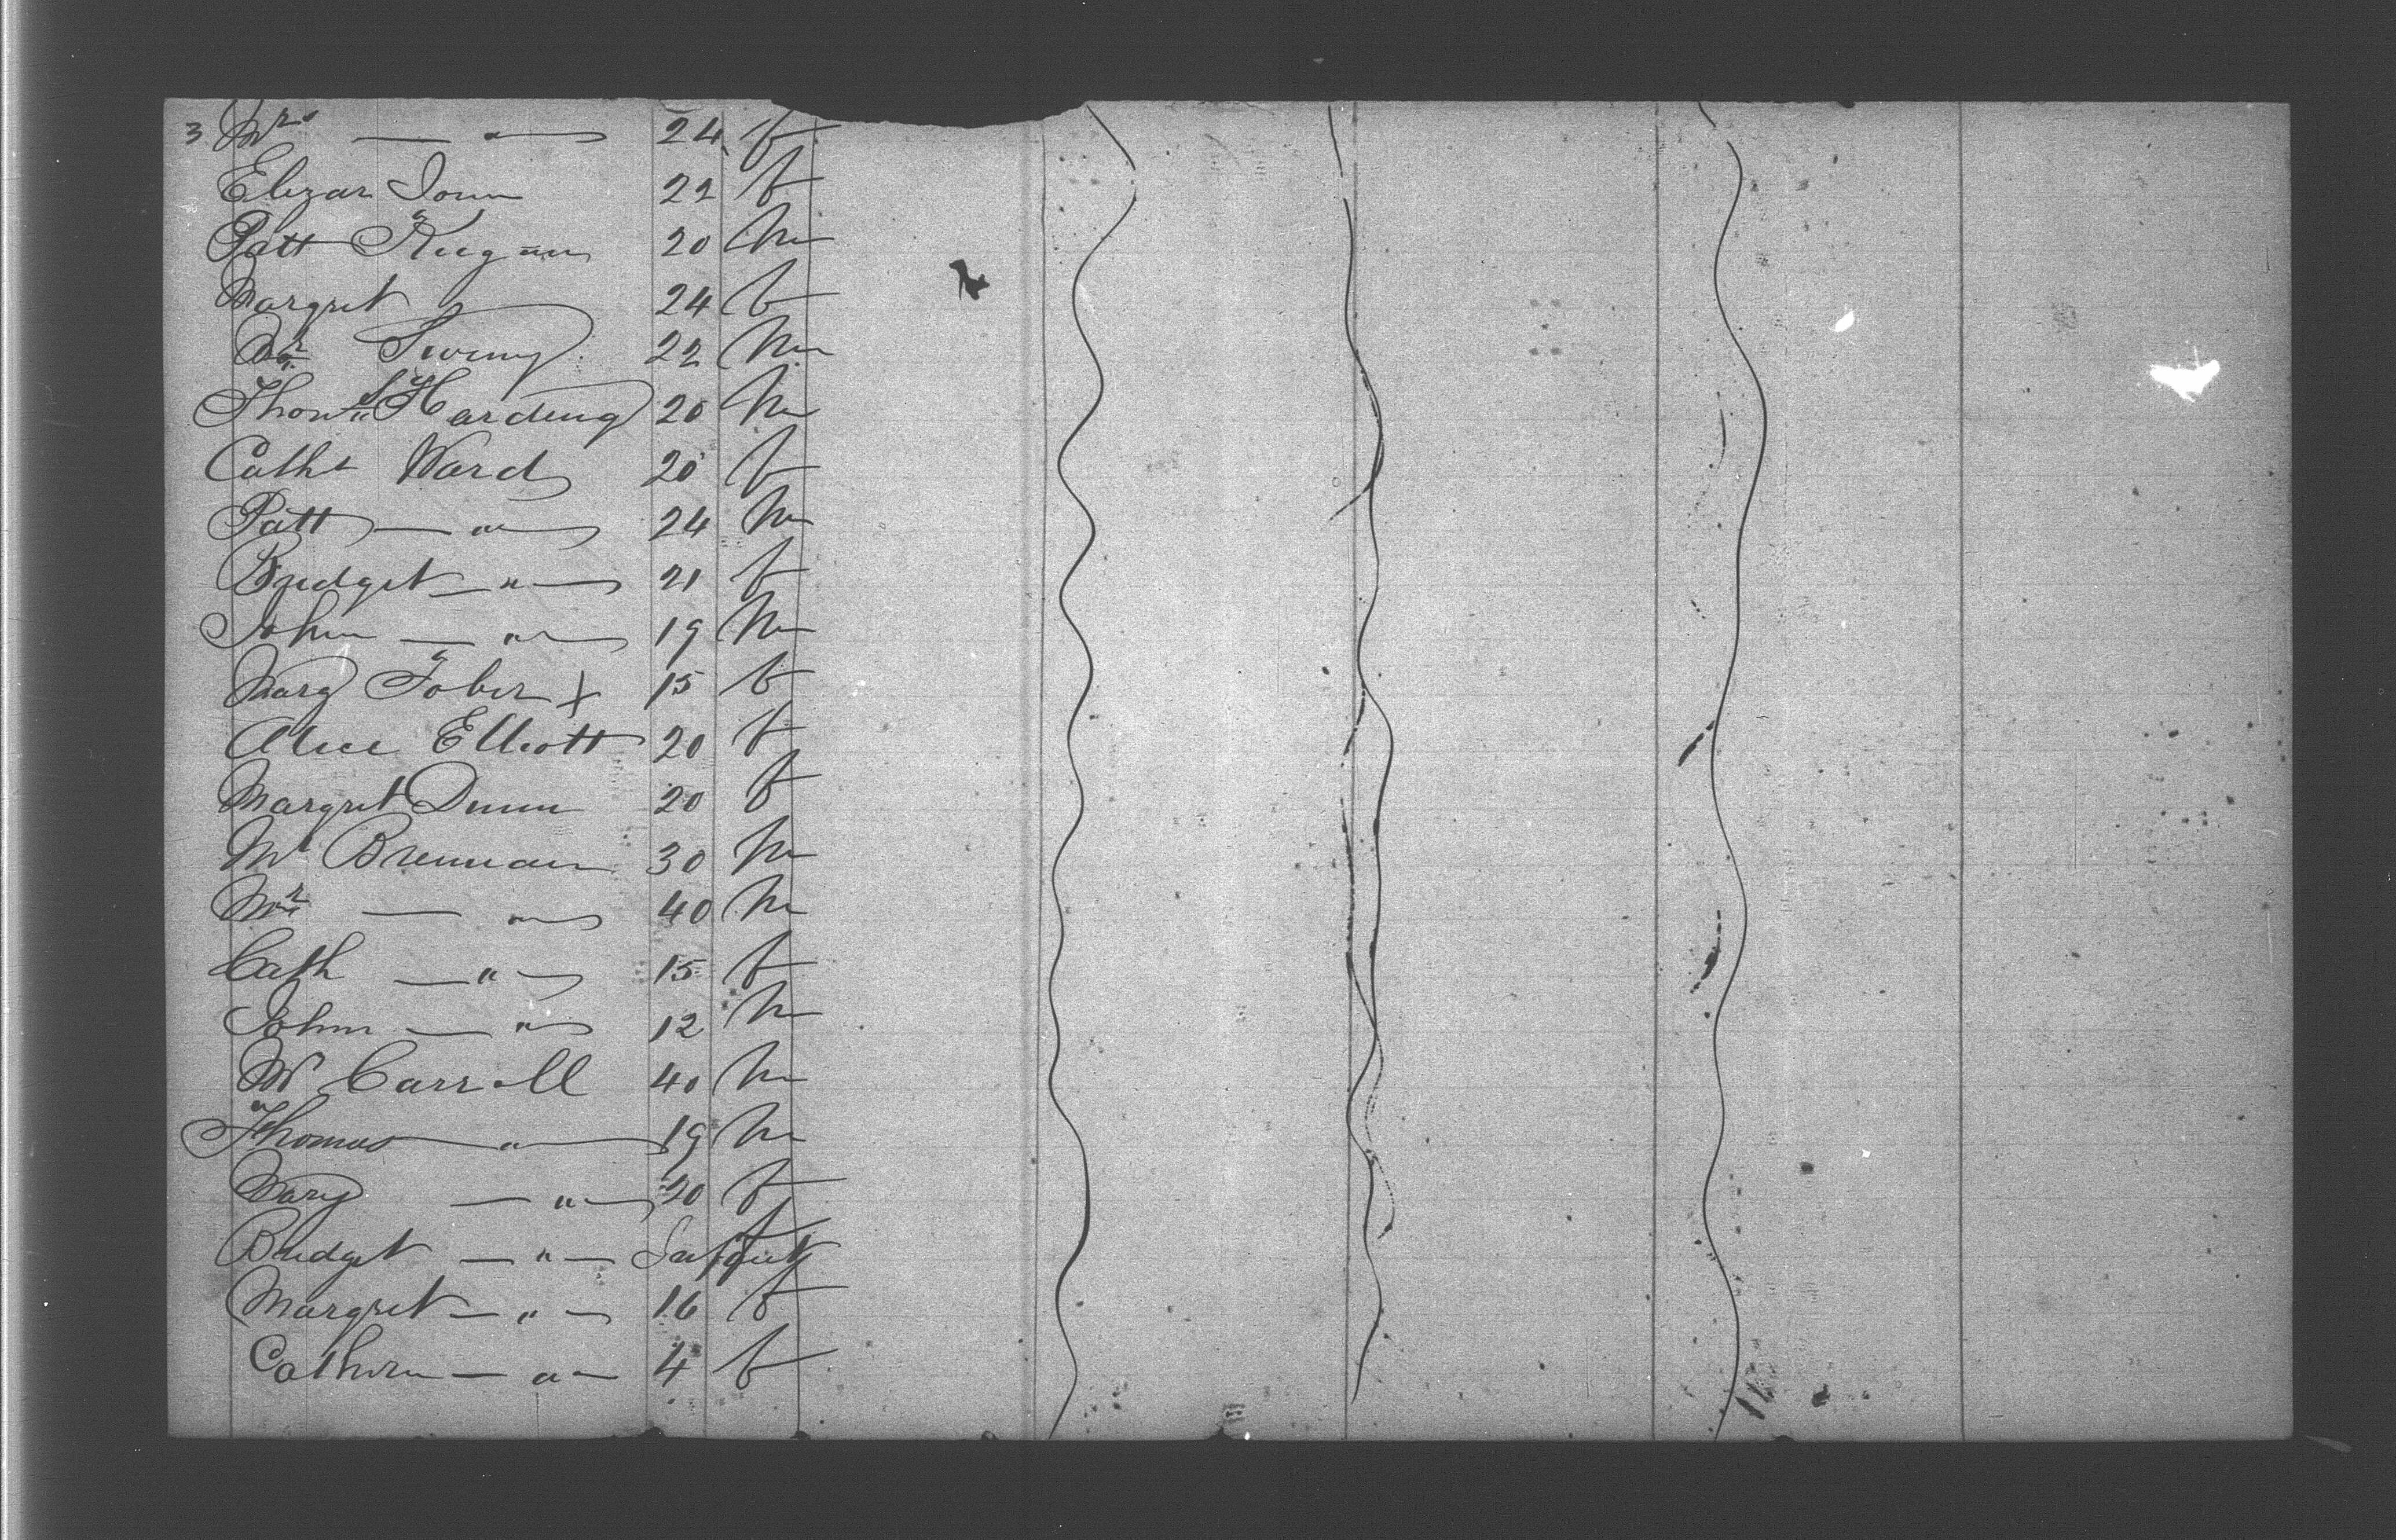 3 Mrs — " — 24 f
Elizar 22 f
Patt Keegan 20 M
Margret 24 f
Swiny 22 M
Thoms Harding 20 M
Cath Ward 20 f
Patt — " — 24 M
Bridget — " — 21 f
John — " — 19 M
Mary Tober X 15 f
Alice Elliott 20 f
Margret Dunn 20 f
Mr Brennan 30 M
Mr — " — 40 M
Cath — " — 15 f
John — " — 12 M
Mr Carroll 40 M
Thomas — " — 19 M
Mary — " — 20 f
Bridget — " — f
Margret — " — 16 f
Cathern — " — 4 f